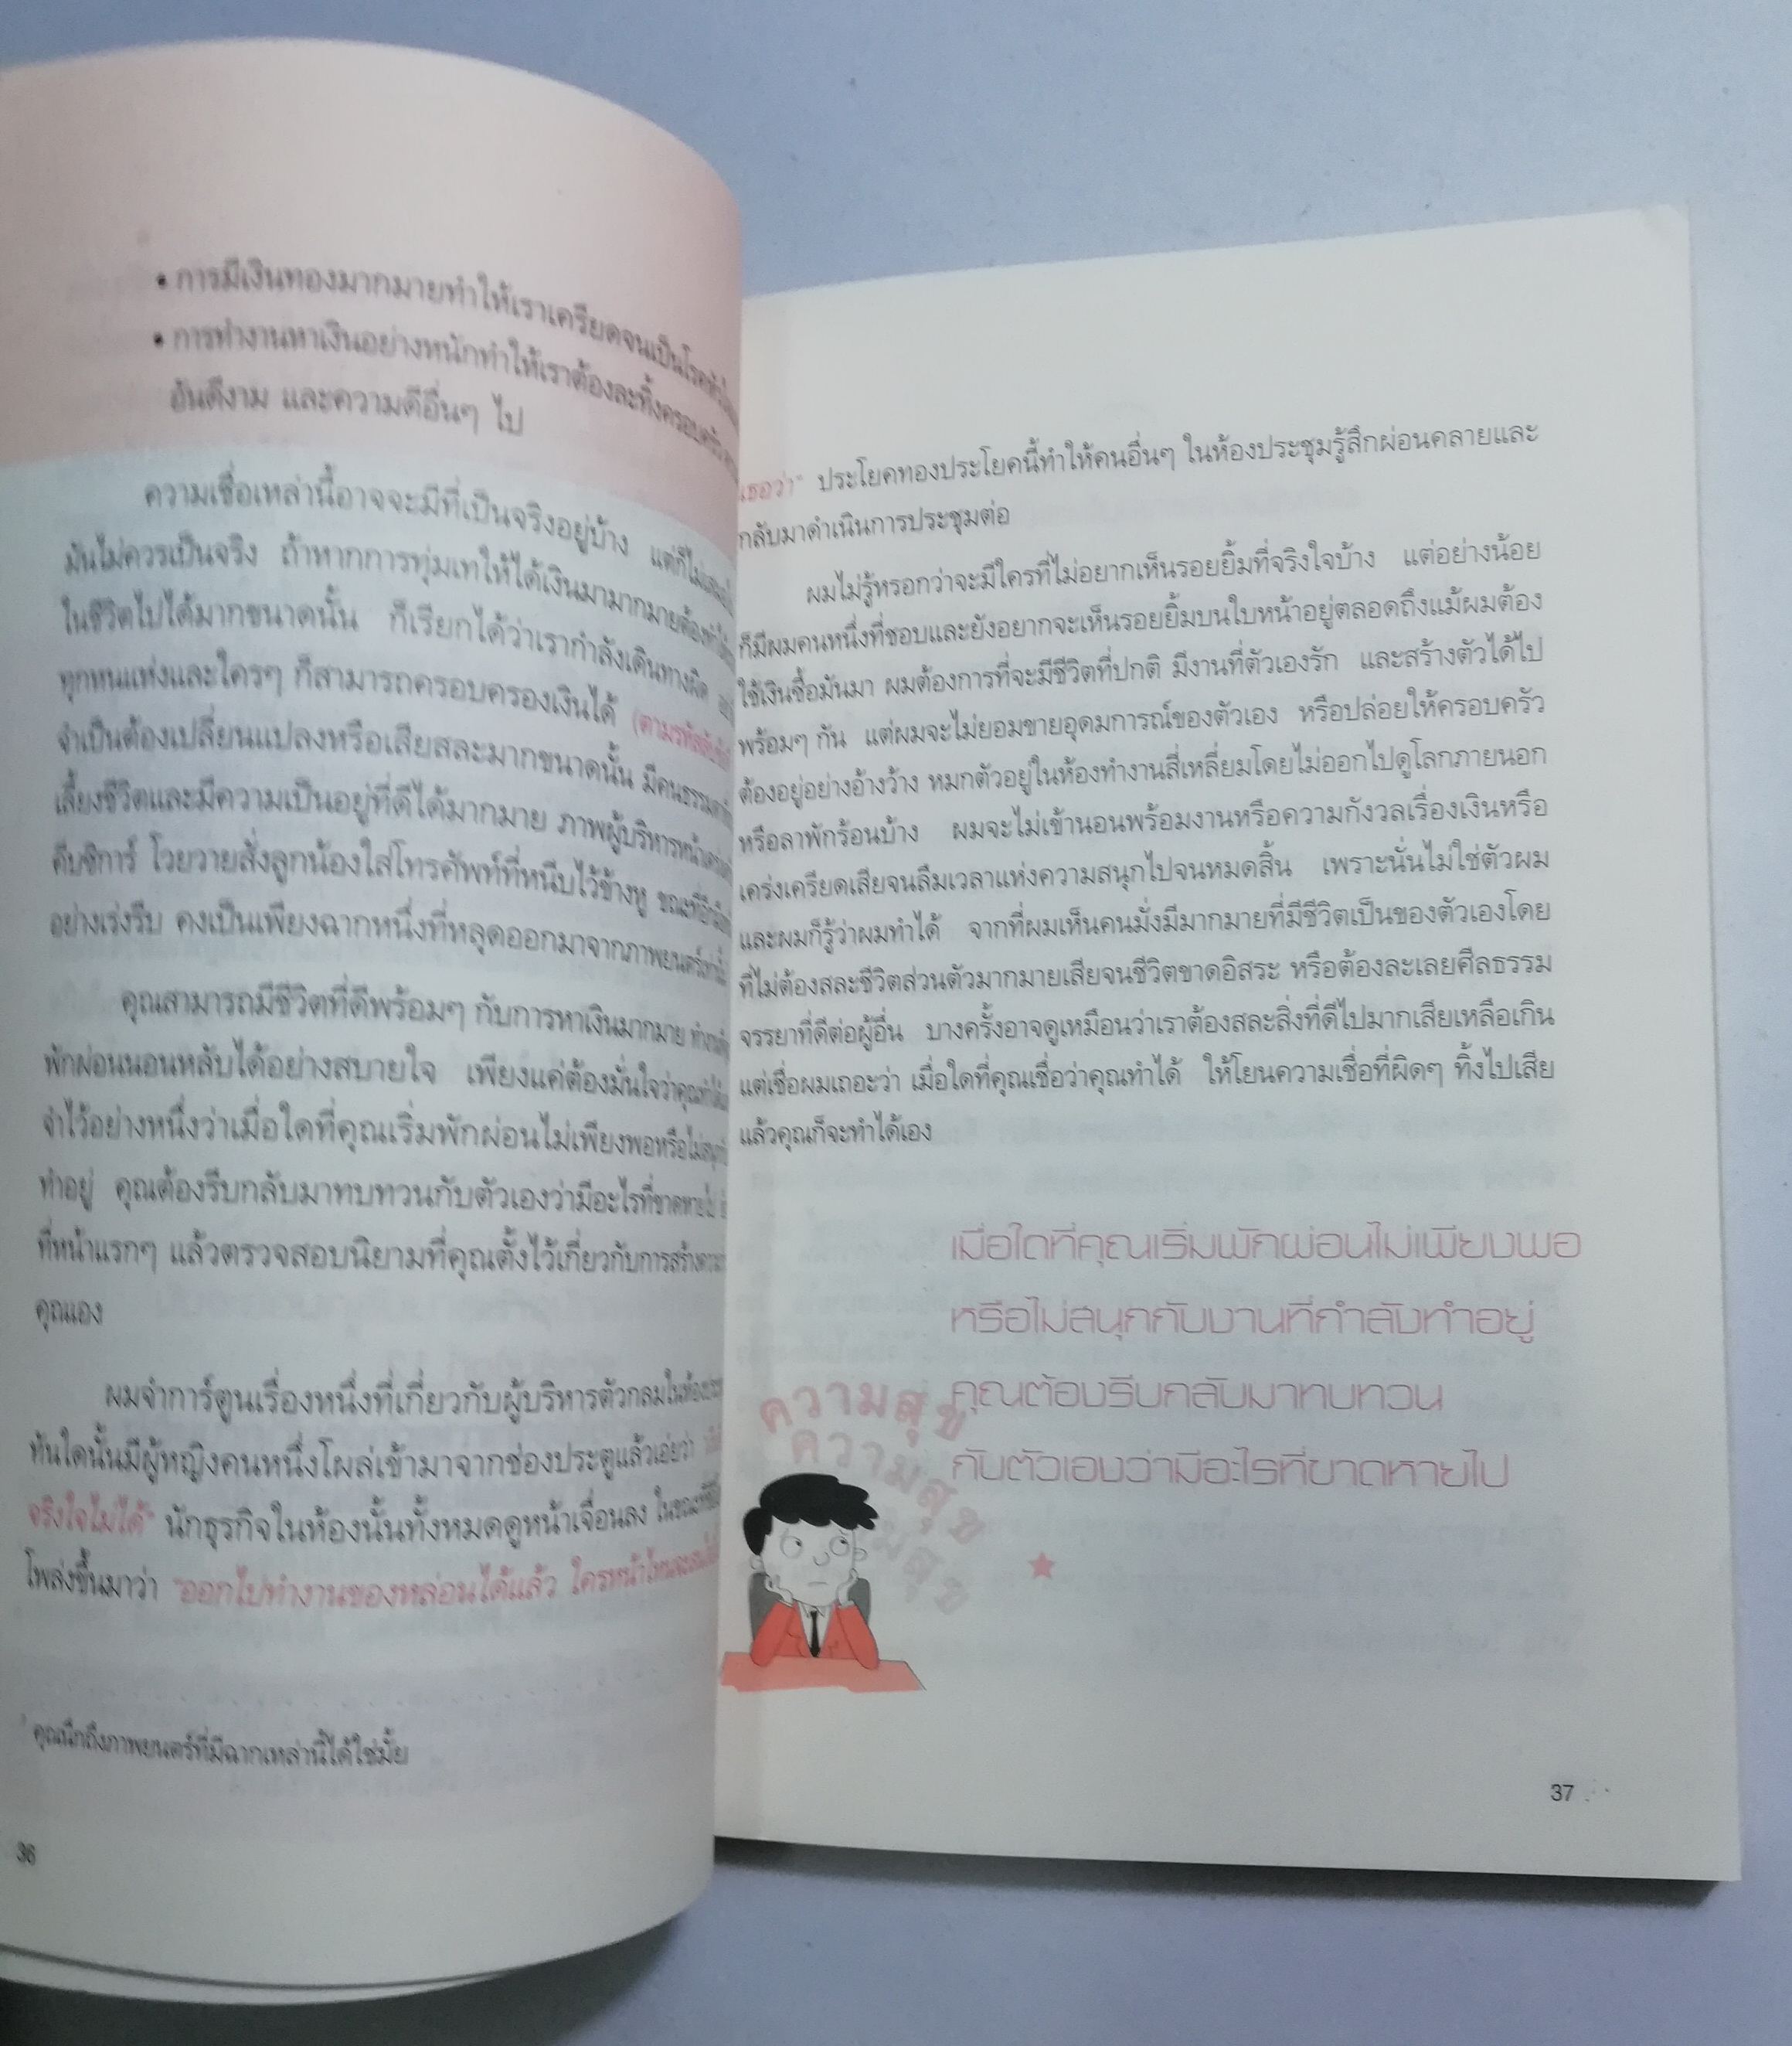 • การมีเงินทองมากมายทำให้เราเครียดจนเป็นโรคหัวใจ
• การทำงานหาเงินอย่างหนักทำให้เราต้องละทิ้งครอบครัว
อันดีงาม และความดีอื่นๆ ไป
ความเชื่อเหล่านี้อาจจะมีที่เป็นจริงอยู่บ้าง แต่ก็ไม่
มันไม่ควรเป็นจริง ถ้าหากการทุ่มเทให้ได้เงินมามากมายต้อง
ในชีวิตไปได้มากขนาดนั้น ก็เรียกได้ว่าเรากำลังเดินทางผิด
ทุกหนแห่งและใครๆ ก็สามารถครอบครองเงินได้
จำเป็นต้องเปลี่ยนแปลงหรือเสียสละมากขนาดนั้น มีคนธรรมดา
เลี้ยงชีวิตและมีความเป็นอยู่ที่ดีได้มากมาย ภาพผู้บริหาร
คีบซิการ์ โวยวายสั่งลูกน้องใส่โทรศัพท์ที่หนีบไว้ข้างหู ขณะที่
อย่างเร่งรีบ คงเป็นเพียงฉากหนึ่งที่หลุดออกมาจากภาพยนตร์
คุณสามารถมีชีวิตที่ดีพร้อมๆ กับการหาเงินมากมาย
พักผ่อนนอนหลับได้อย่างสบายใจ เพียงแค่ต้องมั่นใจว่าคุณ
จำไว้อย่างหนึ่งว่าเมื่อใดที่คุณเริ่มพักผ่อนไม่เพียงพอหรือไม่สนุก
ทำอยู่ คุณต้องรีบกลับมาทบทวนกับตัวเองว่ามีอะไรที่ขาดหายไป
ที่หน้าแรกๆ แล้วตรวจสอบนิยามที่คุณตั้งไว้เกี่ยวกับการสร้าง
คุณเอง
ผมจำการ์ตูนเรื่องหนึ่งที่เกี่ยวกับผู้บริหารตัวกลมในห้อง
ทันใดนั้นมีผู้หญิงคนหนึ่งโผล่เข้ามาจากช่องประตูแล้วเอ่ยว่า
จริงใจไม่ได้" นักธุรกิจในห้องนั้นทั้งหมดดูหน้าเจื่อนลง
โพล่งขึ้นมาว่า "ออกไปทำงานของหล่อนได้แล้ว
คุณนึกถึงภาพยนตร์ที่มีฉากเหล่านี้ได้ใช่มั้ย
36
เธอว่า" ประโยคทองประโยคนี้ทำให้คนอื่นๆ ในห้องประชุมรู้สึกผ่อนคลายและ
กลับมาดำเนินการประชุมต่อ
ผมไม่รู้หรอกว่าจะมีใครที่ไม่อยากเห็นรอยยิ้มที่จริงใจบ้าง แต่อย่างน้อย
ก็มีผมคนหนึ่งที่ชอบและยังอยากจะเห็นรอยยิ้มบนใบหน้าอยู่ตลอดถึงแม้ผมต้อง
ใช้เงินซื้อมันมา ผมต้องการที่จะมีชีวิตที่ปกติ มีงานที่ตัวเองรัก และสร้างตัวได้ไป
พร้อมๆ กัน แต่ผมจะไม่ยอมขายอุดมการณ์ของตัวเอง หรือปล่อยให้ครอบครัว
ต้องอยู่อย่างอ้างว้าง หมกตัวอยู่ในห้องทำงานสี่เหลี่ยมโดยไม่ออกไปดูโลกภายนอก
หรือลาพักร้อนบ้าง ผมจะไม่เข้านอนพร้อมงานหรือความกังวลเรื่องเงินหรือ
เคร่งเครียดเสียจนลืมเวลาแห่งความสนุกไปจนหมดสิ้น เพราะนั่นไม่ใช่ตัวผม
และผมก็รู้ว่าผมทำได้ จากที่ผมเห็นคนมั่งมีมากมายที่มีชีวิตเป็นของตัวเองโดย
ที่ไม่ต้องสละชีวิตส่วนตัวมากมายเสียจนชีวิตขาดอิสระ หรือต้องละเลยศีลธรรม
จรรยาที่ดีต่อผู้อื่น บางครั้งอาจดูเหมือนว่าเราต้องสละสิ่งที่ดีไปมากเสียเหลือเกิน
แต่เชื่อผมเถอะว่า เมื่อใดที่คุณเชื่อว่าคุณทำได้ ให้โยนความเชื่อที่ผิดๆ ทิ้งไปเสีย
แล้วคุณก็จะทำได้เอง
เมื่อใดที่คุณเริ่มพักผ่อนไม่เพียงพอ
หรือไม่สนุกกับงานที่กำลังทำอยู่
คุณต้องรีบกลับมาทบทวน
กับตัวเองว่ามีอะไรที่ขาดหายไป
ความสุข
ความสุข
มสุข
37